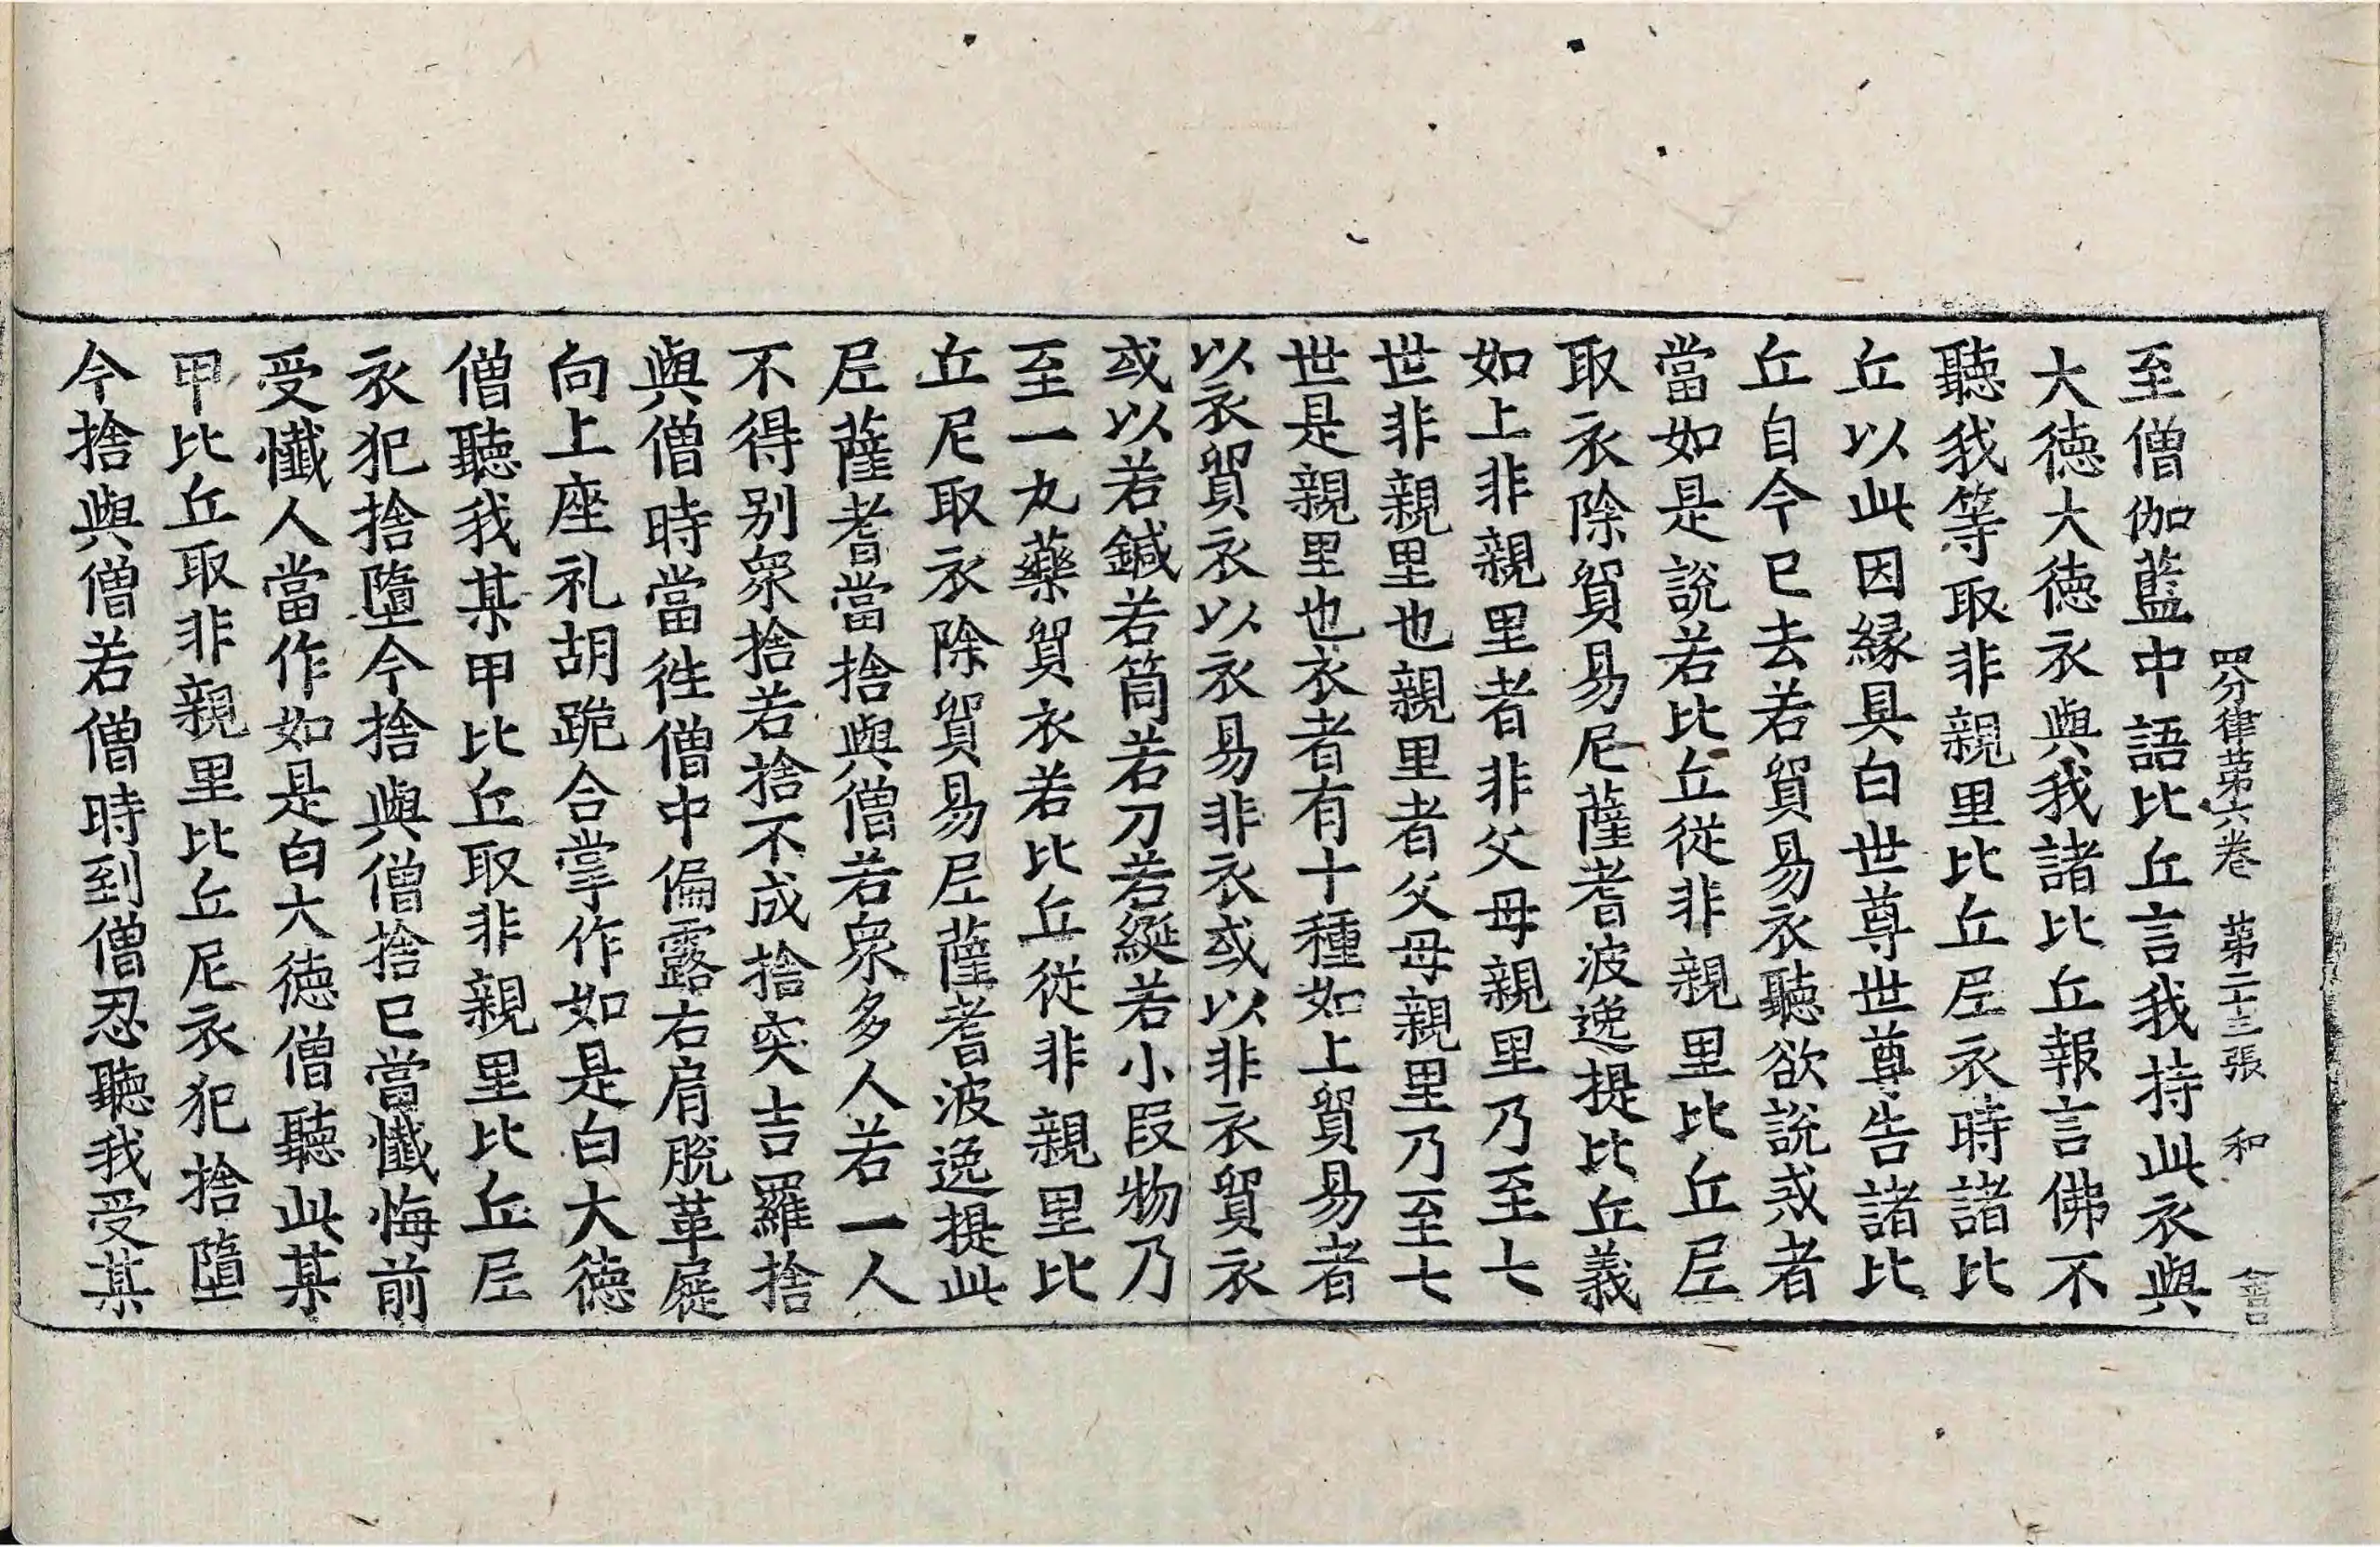 四分律第六卷　第二十三張　和
至僧伽藍中語比丘言我持此衣與
大德大德衣與我諸比丘報言佛不
聽我等取非親里比丘尼衣時諸比
丘以此因緣具白世尊世尊告諸比
丘自今已去若貿易衣聽欲說戒者
當如是說若比丘從非親里比丘尼
取衣除貿易尼薩耆波逸提比丘義
如上非親里者非父母親里乃至七
世非親里也親里者父母親里乃至七
世是親里也衣者有十種如上貿易者
以衣貿衣以衣易非衣或以非衣貿衣
或以若鍼若筒若刀若綖若小段物乃
至一丸藥貿衣若比丘從非親里比
丘尼取衣除貿易尼薩耆波逸提此
尼薩耆當捨與僧若衆多人若一人
不得別衆捨若捨不成捨突吉羅捨
與僧時當徃僧中偏露右肩脫革屣
向上座礼胡跪合掌作如是白大德
僧聽我某甲比丘取非親里比丘尼
衣犯捨墮今捨與僧捨已當懺悔前
受懺人當作如是白大德僧聽此某
甲比丘取非親里比丘尼衣犯捨墮
今捨與僧若僧時到僧忍聽我受某